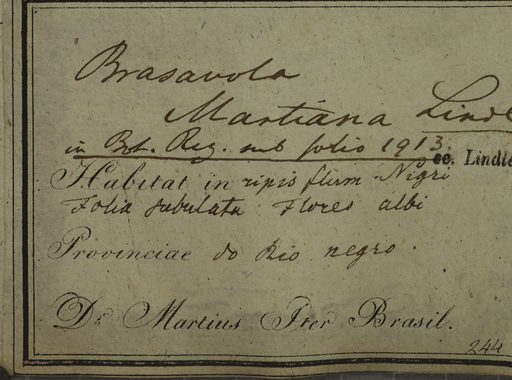 Brasavola
Martiana Lindl
in Bot. Reg. sub folio 1913.
ee. Lindle
Habitat in ripis flum. Nigri
Folia subulata. Flores albi
Provinciae do Rio negro.
Dr. Martius Iter Brasil.
244